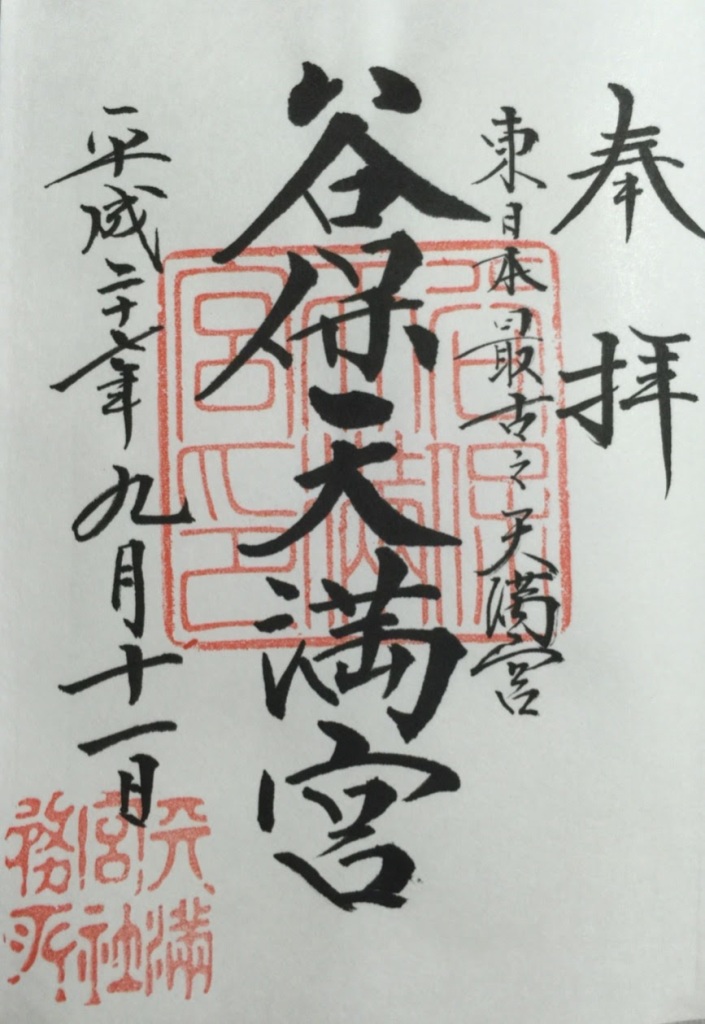 奉拝
東日本最古之天満宮
谷保天満宮
平成二十七年九月十一日
谷保
天満
宮印
天満
宮社
務所